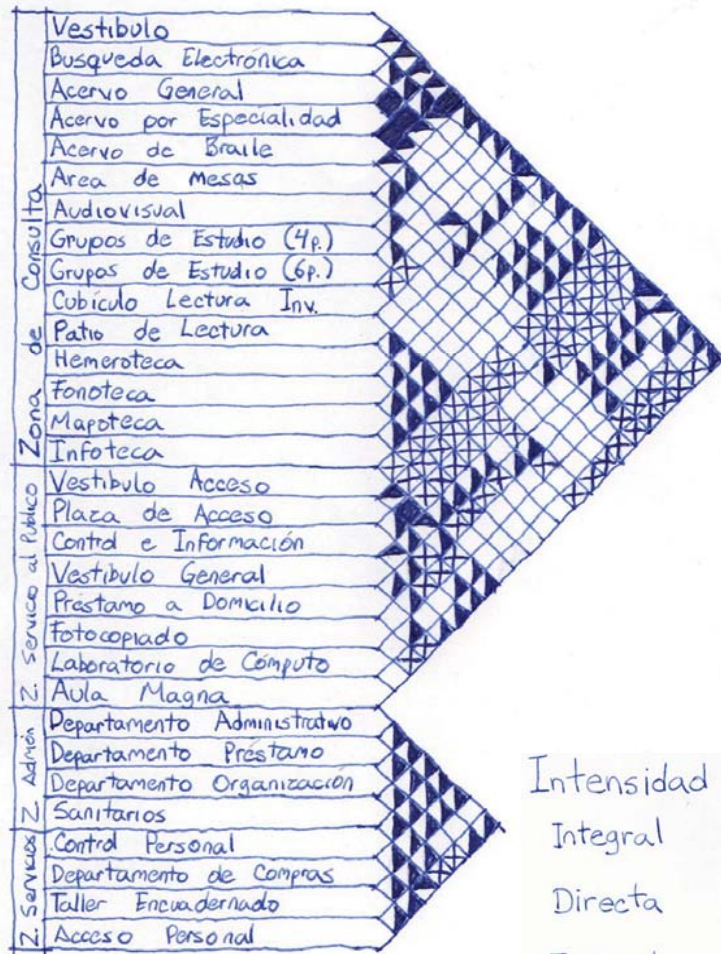 Zona de Consulta
Vestibulo
Busqueda Electrónica
Acervo General
Acervo por Especialidad
Acervo de Braile
Area de Mesas
Audiovisual
Grupos de Estudio (4p.)
Grupos de Estudio (6p.)
Cubículo Lectura Inv.
Patio de Lectura
Hemeroteca
Fonoteca
Mapoteca
Infoteca
Z. Servicio al Publico
Vestibulo Acceso
Plaza de Acceso
Control e Información
Vestibulo General
Préstamo a Domicilio
Fotocopiado
Laboratorio de Cómputo
Aula Magna
Z. Admón
Departamento Administrativo
Departamento Préstamo
Departamento Organización
Sanitarios
Z. Servicios
Control Personal
Departamento de Compras
Taller Encuadernado
Acceso Personal
Intensidad
Integral
Directa